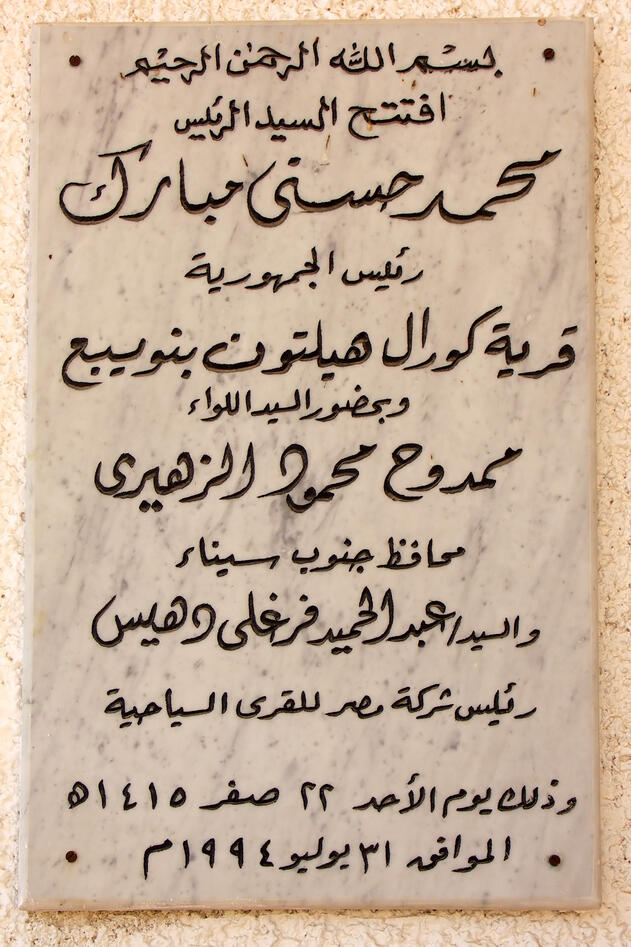 بسم الله الرحمن الرحيم
افتتح السيد الرئيس
محمد حسنى مبارك
رئيس الجمهورية
قرية كورال هيلتون بنويبع
وبحضور السيد اللواء
ممدوح محمود الزهيرى
محافظ جنوب سيناء
والسيد/ عبد الحميد فرغلى دهيس
رئيس شركة مصر للقرى السياحية
وذلك يوم الأحد ٢٢ صفر ١٤١٥ه
الموافق ٣١ يوليو ١٩٩٤م